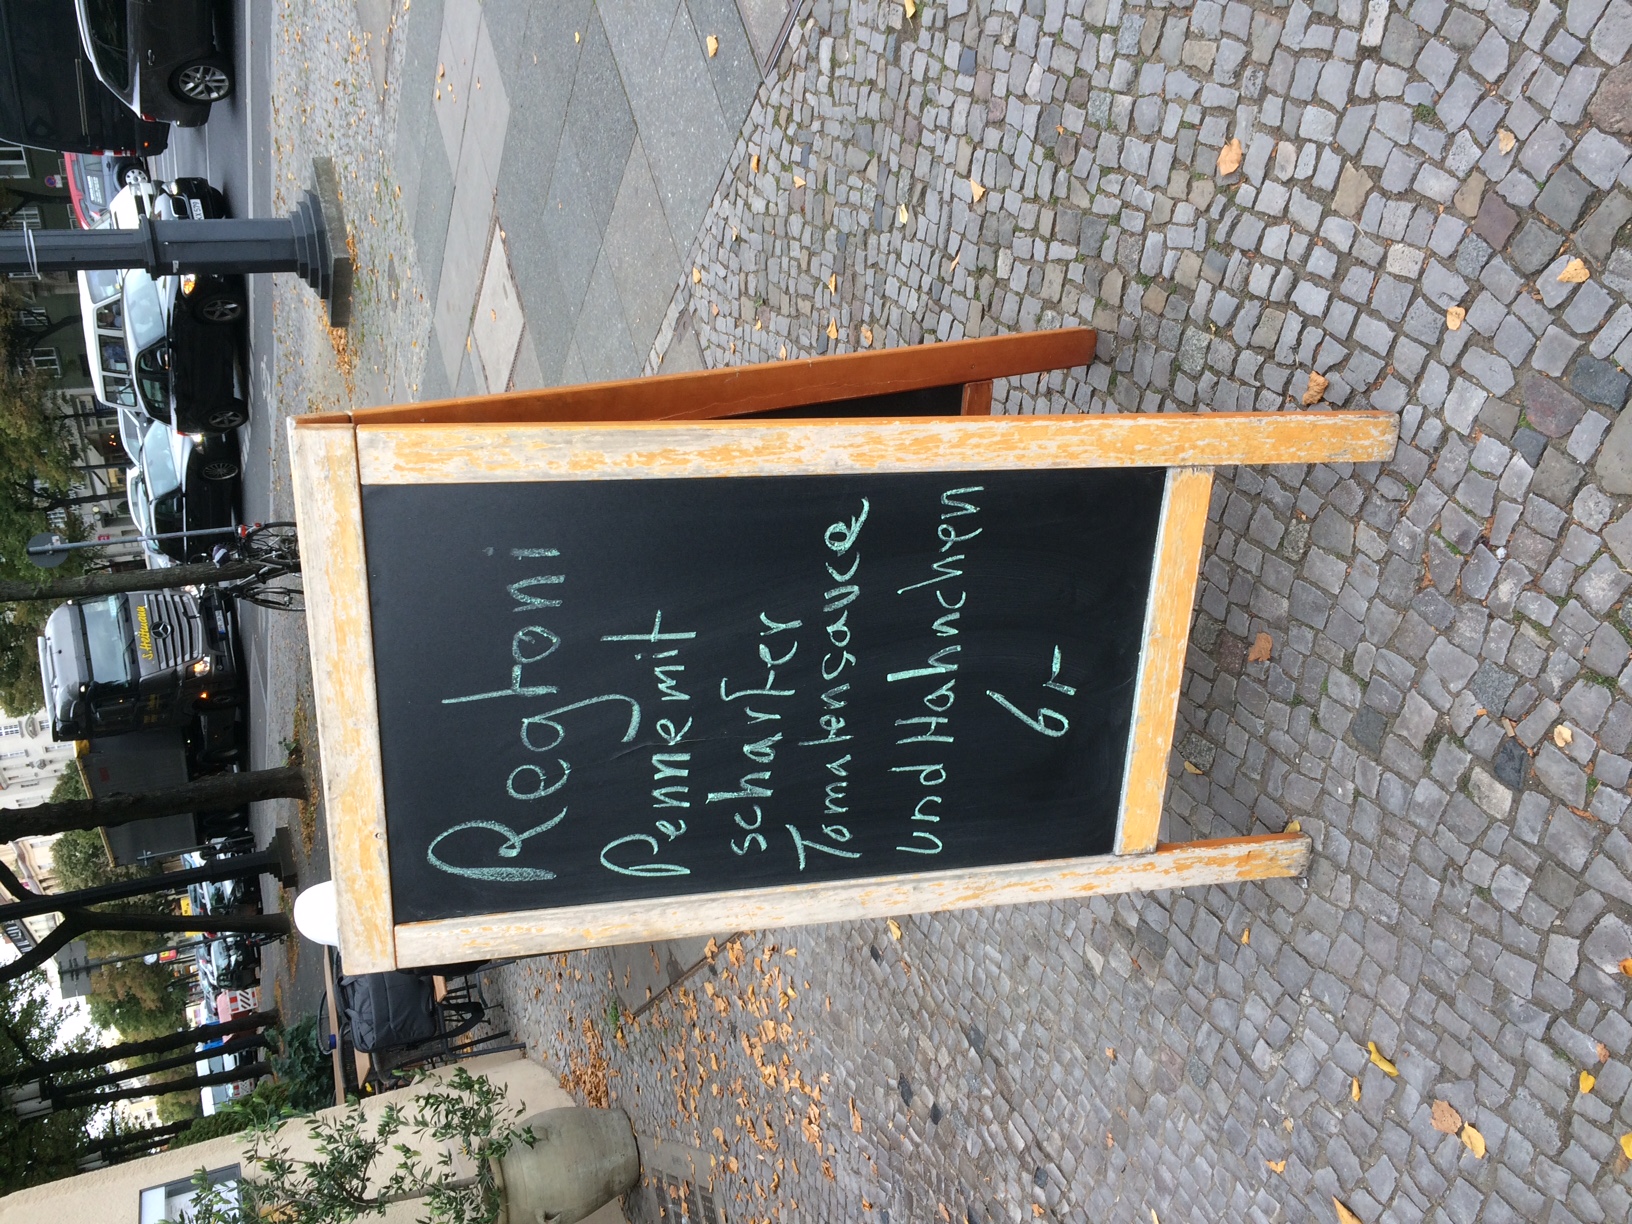 Regtoni
Penne mit
scharfer
Tomatensauce
und Hahnchen
6,-
S.Heitmann